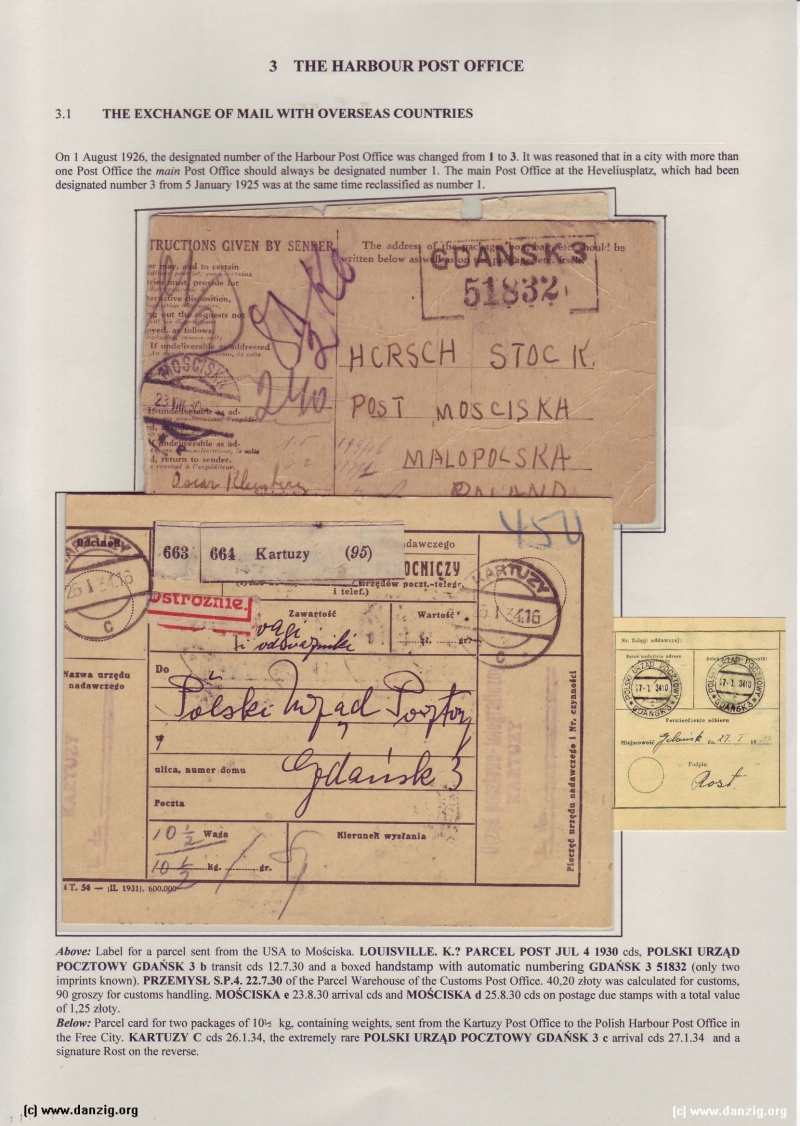 3 THE HARBOUR POST OFFICE
3.1 THE EXCHANGE OF MAIL WITH OVERSEAS COUNTRIES
On 1 August 1926, the designated number of the Harbour Post Office was changed from 1 to 3. It was reasoned that in a city with more than
one Post Office the main Post Office should always be designated number 1. The main Post Office at the Heveliusplatz, which had been
designated number 3 from 5 January 1925 was at the same time reclassified as number 1.
TRUCTIONS GIVEN BY SENDER
er may, and to certain
tries must, provide for
ternative disposition,
ng out the requests not
oyed, as follows:
If undeliverable as addressed
If undeliverable as ad-
undeliverable as ad-
d, return to sender.
The address of the package, box, bag, etc., should be
written below as well as on the package itself.
GDAŃSK 3
51832
HERSCH STOCK.
POST MOSCISKA
MALOPOLSKA
POLAND
MOŚCISKA
23 VIII 30
240
Oscar
450
Odcinek
663
664 Kartuzy (95)
nadawczego
OCNICZY
(urzędów poczt.-telegr.
i telef.)
KARTUZY
26 I 34.16
C
KARTUZY
6 I 34.16
C
Ostrożnie.
Zawartość
Wartość
zł. gr.
wagi
i odważniki
Nazwa urzędu
nadawczego
Do
Polski Urząd Poczto
ulica, numer domu
Gdańsk 3
Poczta
10 ½ Waga
10 ½ kg. gr.
Kierunek wysłania
Pieczęć urzędu nadawczego i Nr. czynności
KARTUZY
KARTUZY
T. 54 — (II. 1931). 600.000
Nr. księgi oddawczej:
POLSKI URZĄD POCZTOWY
27-1 3410
GDAŃSK 3
POLSKI URZĄD POCZTOWY
27-1 3410
GDAŃSK 3
Potwierdzenie odbioru
Miejscowość Gdańsk 27. I 19
Podpis:
Rost
Above: Label for a parcel sent from the USA to Mościska. LOUISVILLE. K.? PARCEL POST JUL 4 1930 cds, POLSKI URZĄD
POCZTOWY GDAŃSK 3 b transit cds 12.7.30 and a boxed handstamp with automatic numbering GDAŃSK 3 51832 (only two
imprints known). PRZEMYSŁ S.P.4. 22.7.30 of the Parcel Warehouse of the Customs Post Office. 40,20 złoty was calculated for customs,
90 groszy for customs handling. MOŚCISKA e 23.8.30 arrival cds and MOŚCISKA d 25.8.30 cds on postage due stamps with a total value
of 1,25 złoty.
Below: Parcel card for two packages of 10½ kg, containing weights, sent from the Kartuzy Post Office to the Polish Harbour Post Office in
the Free City. KARTUZY C cds 26.1.34, the extremely rare POLSKI URZĄD POCZTOWY GDAŃSK 3 c arrival cds 27.1.34 and a
signature Rost on the reverse.
(c) www.danzig.org
(c) www.danzig.org